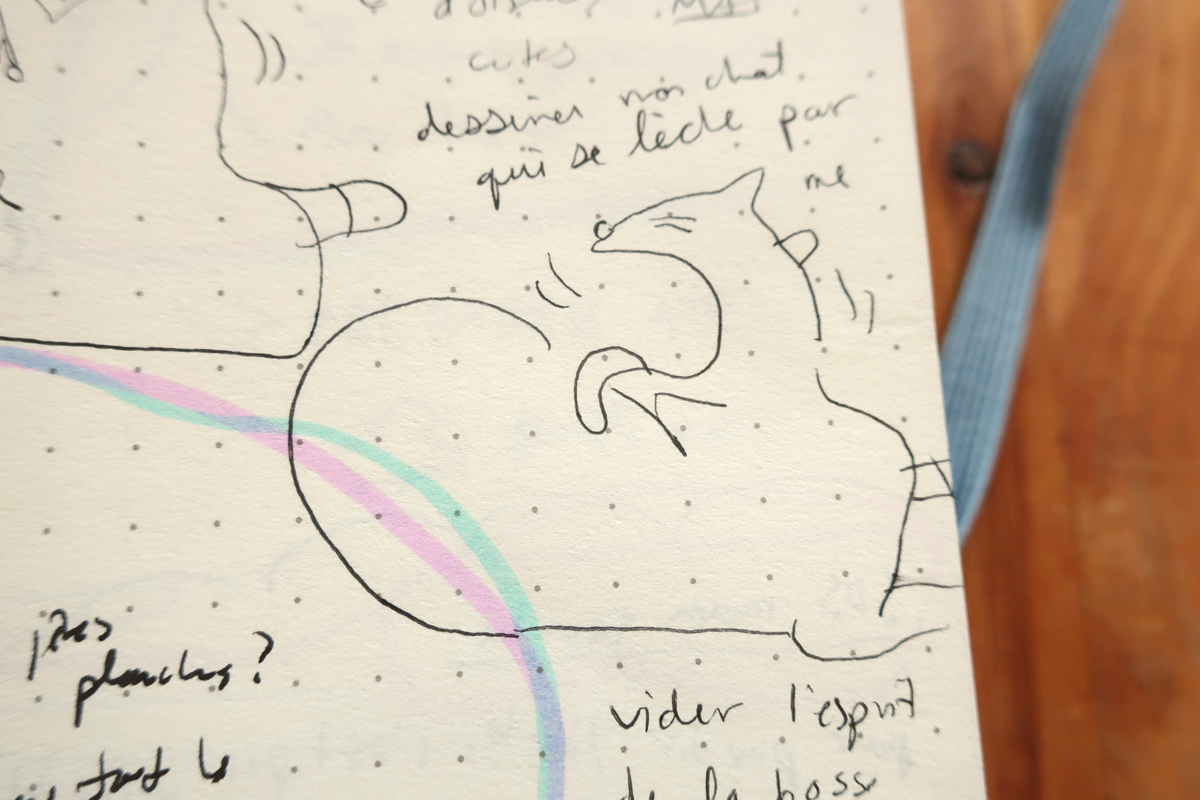 cutes
dessiner mon chat
qui se lèche par
me
idées
planches?
tout le
vider l'esprit
de la boss